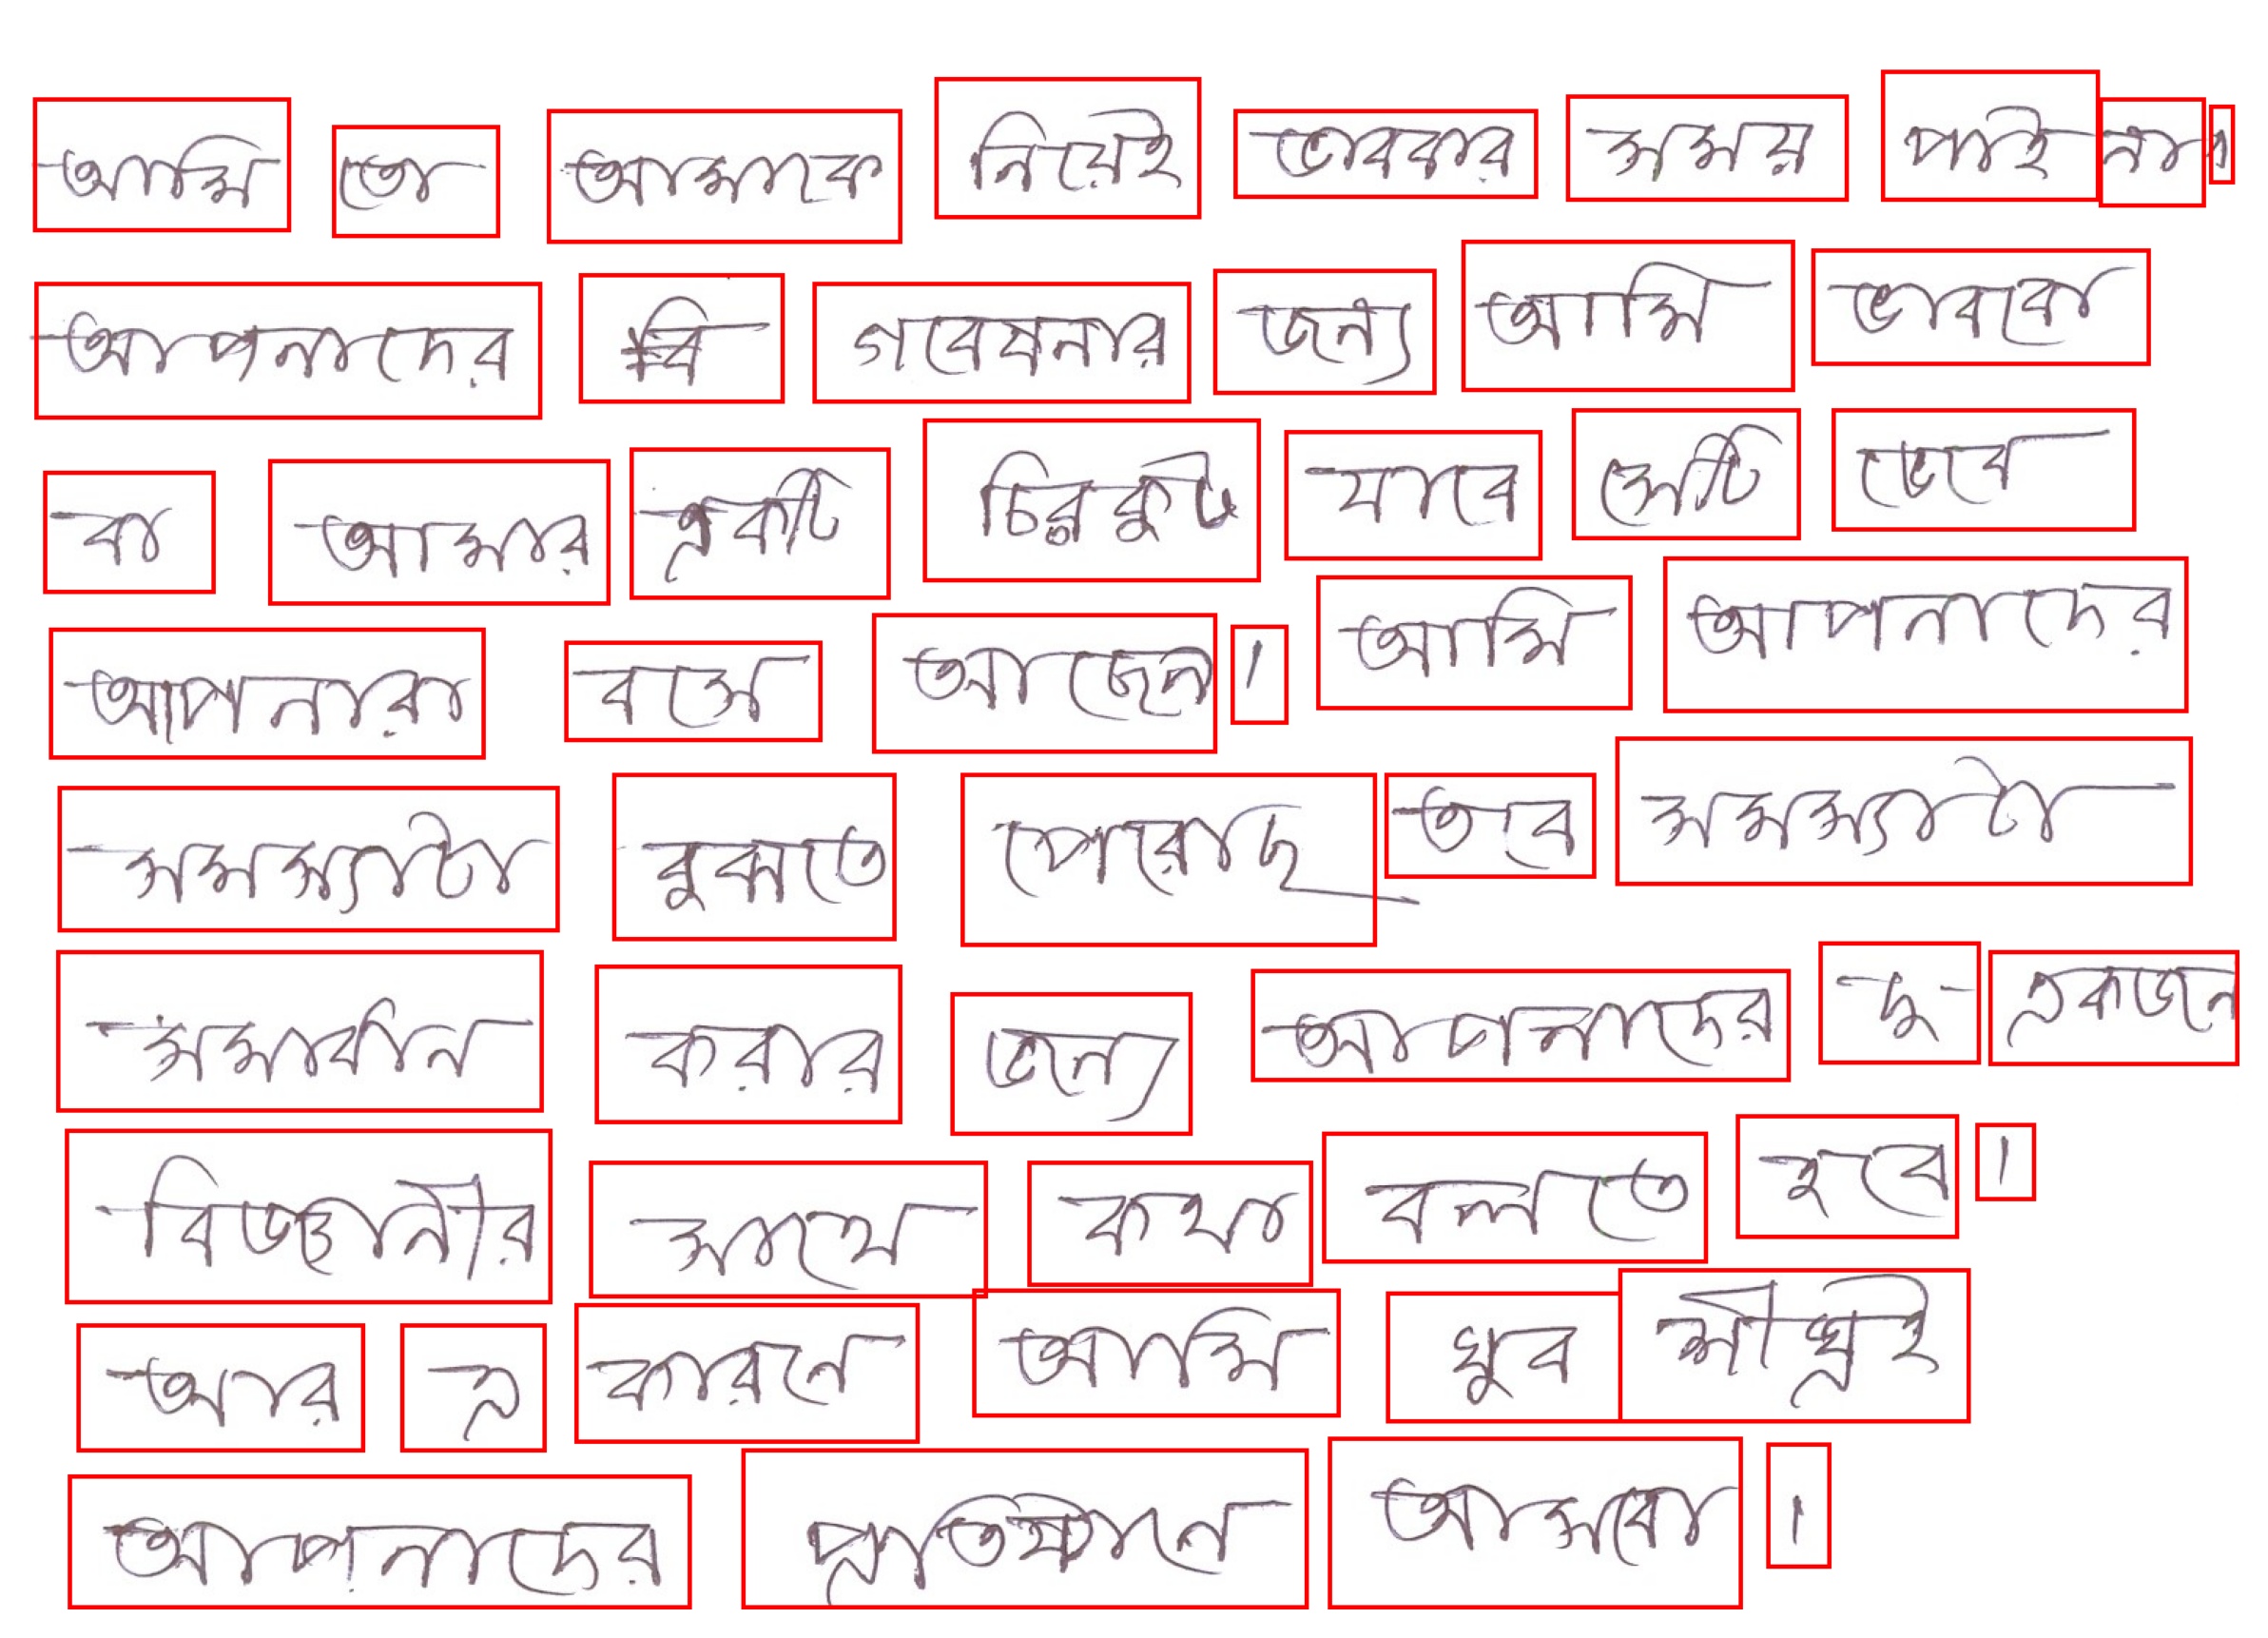 আমি তো আমাকে নিয়েই ভাববার সময় পাই না।
আপনাদের কি গবেষনার জন্য আমি ভাববো
বা আমার একটি চিরকুট যাবে সেটি ভেবে
আপনারা বসে আছেন। আমি আপনাদের
সমস্যাটা বুঝতে পেরেছি তবে সমস্যাটা
সমাধান করার জন্যে আপনাদের দু-একজন
বিজ্ঞানীর সাথে কথা বলতে হবে।
আর এ কারনে আমি খুব শীঘ্রই
আপনাদের প্রতিষ্ঠানে আসবো।